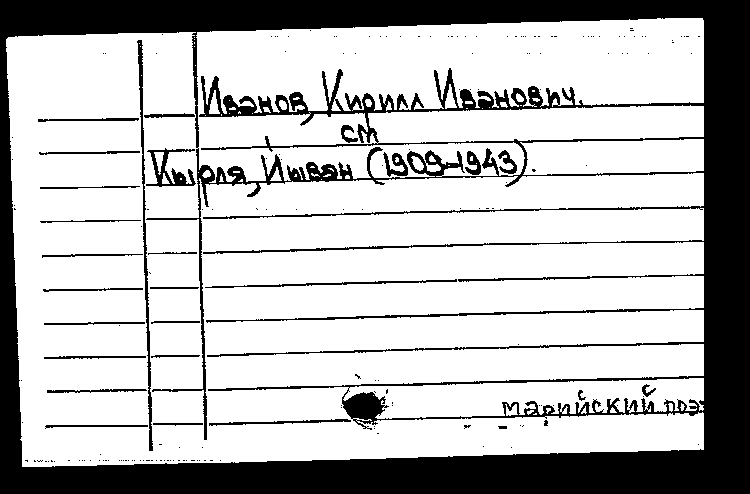 Иванов, Кирилл Иванович.
см
Кырля, Йыван (1909-1943).
марийский поэ